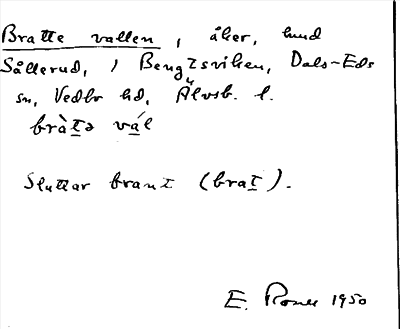 Bratte vallen, åker, hmd
Sållerud, i Bengtsviken, Dals-Eds
sn, Vedbo hd, Älvsb. l.
bràtə vál
Sluttar brant (brat).
E. 1950